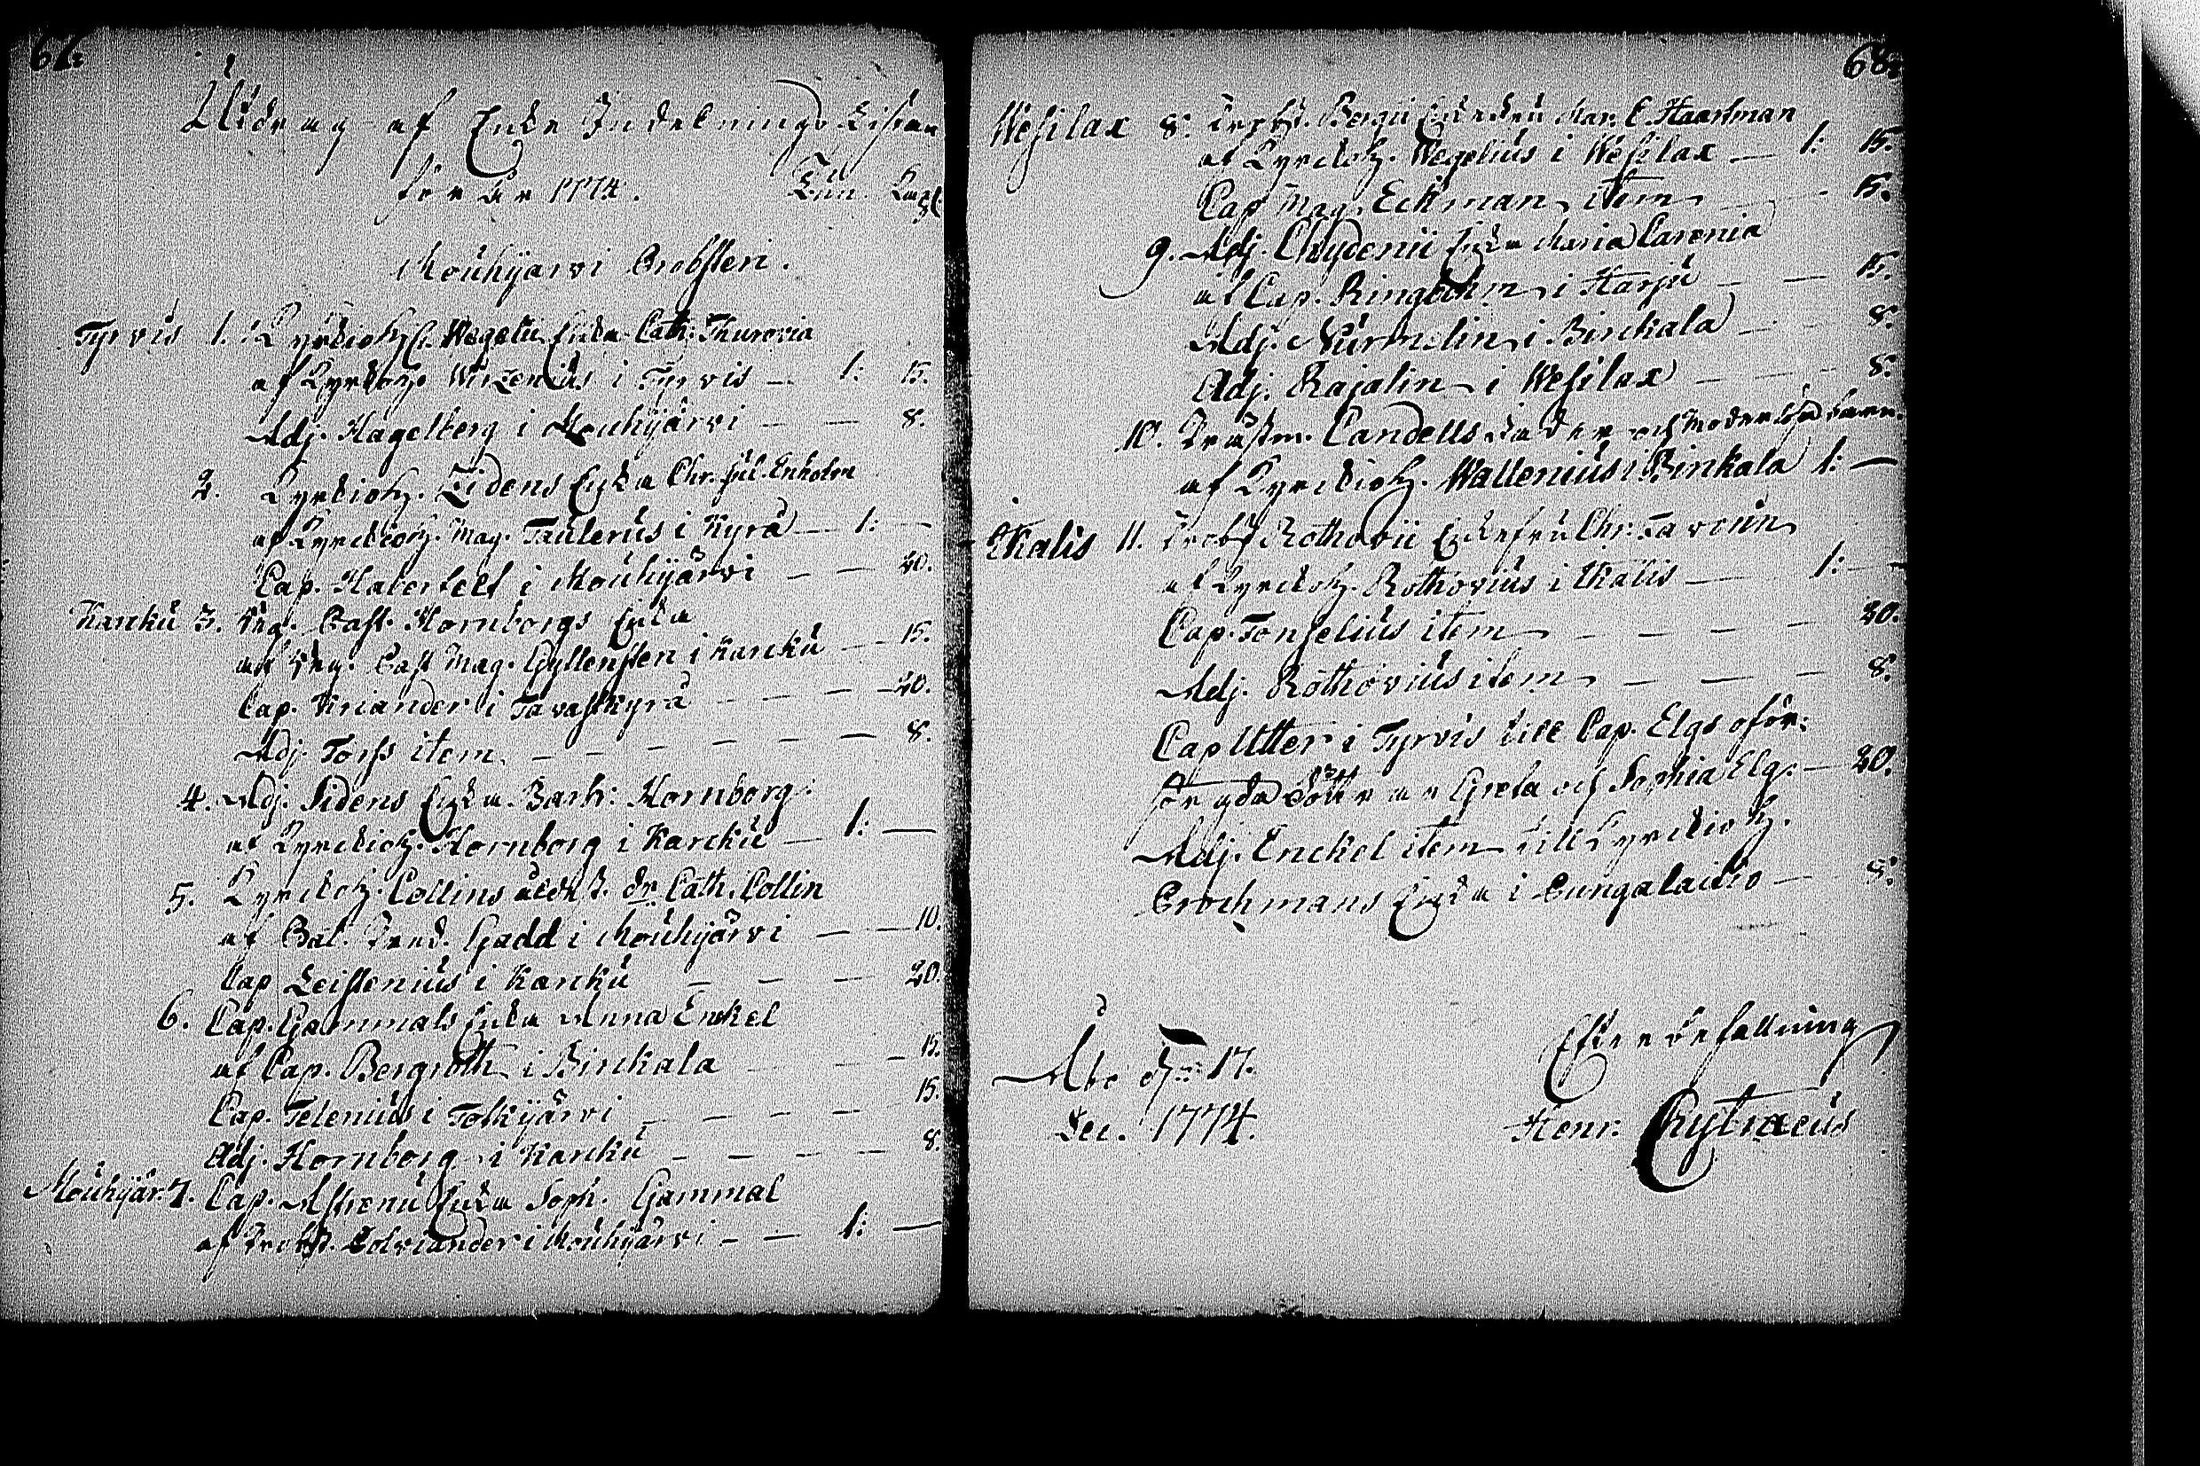 67.
Utdrag af Enke Indelnings Listan
för År 1774. Tun. Kapl.
Mouhijärvi Probsteri.
Tyrvis 1. Kyrckioh. Wegelii Enka Cath: Thurovia
af Kyrckoh. Wirzenius i Tyrvis — 1: 15.
Adj. Hagelberg i Mouhijärvi — — 8.
2. Kyrckioh. Lidens Enka Chr. Jul. Enholm
af Kyrckioh. Mag. Faulerus i Kyrä — 1: —
Cap. Haberfelt i Mouhijärvi — — 20.
Karcku 3. Reg. Past. Hornborgs Enka
af Reg. Past Mag. Gyllensten i Karcku — 15.
Cap. Kriander i Tavastkyrä — — — 20.
Adj. Forss item — — — — — — 8.
4. Adj. Sidens Enka Barb: Hornborg.
af Kyrckioh. Hornborg i Karcku — 1: —
5. Kyrckoh. Collins äldst. dr Cath. Collin
af Bat. Pred. Gadd i Mouhijärvi — — 10.
Cap Leistenius i Karcku — — — 20.
6. Cap. Gammals Enka Anna Enckel
af Cap. Bergroth i Birckala — — — 15.
Cap. Telenius i Tottijärvi — — — — 15.
Adj. Hornborg i Karcku — — — — 8.
Mouhijär. 7. Cap. Astrenii Enka Soph. Gammal
af Probst. Polviander i Mouhijärvi — — 1: —
68.
Wesilax 8. Probst. Bergii Enkefru Mar. E. Haartman
af Kyrckoh. Wegelius i Wesilax — 1: 15.
Cap Mag. Eckman item — — 15.
9. Adj. Chydenii Enka Maria Carenia
af Cap. Ringbohm i Harju — — 15.
Adj. Nurmelin i Birckala — — 8.
Adj. Rajalin i Wesilax — — — 8.
10. Candells fader och moderlösa barn
af Kyrckioh. Wallenius i Birckala 1: —
Ikalis 11. Probst Rothovii Enkefru Chr. Favorin
af Kyrckoh. Rothovius i Ikalis — 1: —
Cap. Tonselius item — — — — 20.
Adj. Rothovius item — — — 8.
Cap Utter i Tyrvis till Cap. Elgs oför:
sörgda döttrar Greta och Sophia Elg. — 20.
Adj. Enckel item till Kyrckioh.
Prochmans Enka i Pungalaitio — 8.
Åbo d. 17.
Dec. 1774.
Efter befallning
Henr. Chytraeus